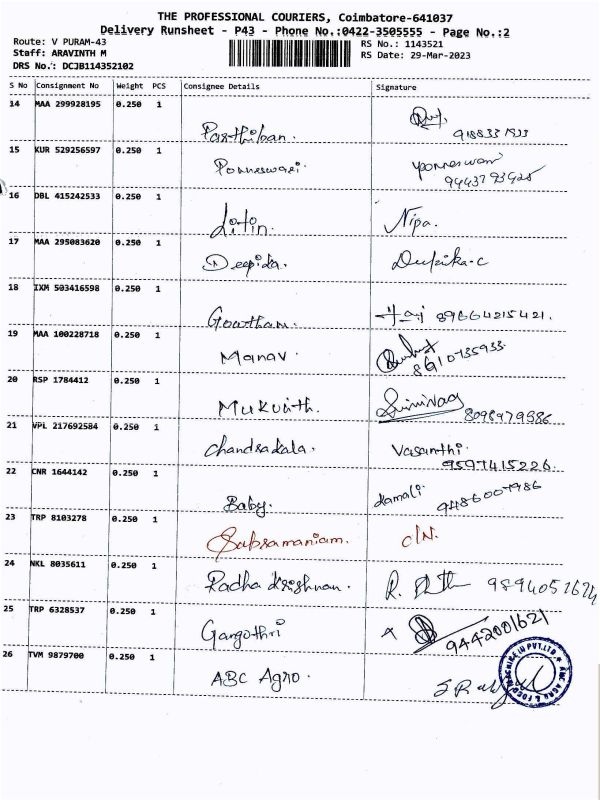 THE PROFESSIONAL COURIERS, Coimbatore-641037
Delivery Runsheet - P43 - Phone No.:0422-3505555 - Page No.:2
Route: V PURAM-43
Staff: ARAVINTH M
DRS No.: DCJB114352102
RS No.: 1143521
RS Date: 29-Mar-2023
S No Consignment No Weight PCS Consignee Details Signature
14 MAA 299928195 0.250 1
Parthiban.
15 KUR 529256597 0.250 1
Ponneswari.
16 DBL 415242533 0.250 1
Nipa.
17 MAA 295083620 0.250 1
Deepika.
18 IXM 503416598 0.250 1
Gowtham. 89664215421.
19 MAA 100228718 0.250 1
Manav. 8610735933
20 RSP 1784412 0.250 1
Srinivas
8098979586
21 VPL 217692584 0.250 1
Chandrakala. Vasanthi.
9597415226
22 CNR 1644142 0.250 1
Baby. Kamali.
23 TRP 8103278 0.250 1
Subramaniam. C/N.
24 NKL 8035611 0.250 1
Radha Krishnan. R. 9894051624
25 TRP 6328537 0.250 1
Gangothri 9442001621
26 TVM 9879700 0.250 1
ABC Agro.